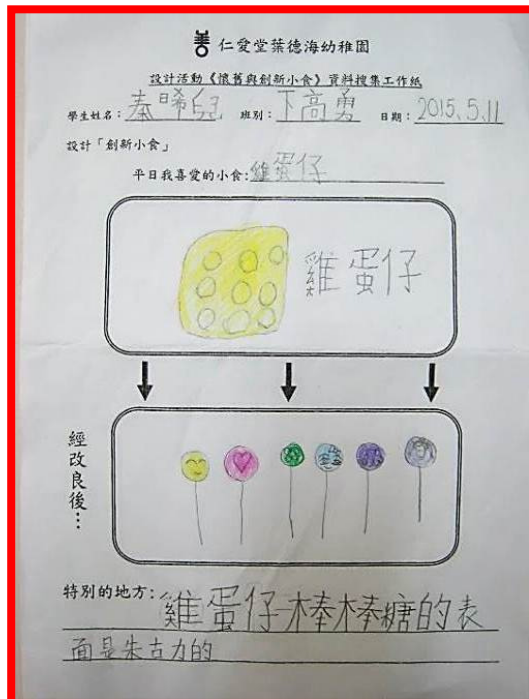 仁愛堂葉德海幼稚園
設計活動《懷舊與創新小食》資料搜集工作紙
學生姓名：秦晞兒 班別：下高勇 日期：2015.5.11
設計「創新小食」
平日我喜愛的小食：雞蛋仔
雞蛋仔
經改良後…
特別的地方：雞蛋仔棒棒糖的表
面是朱古力的